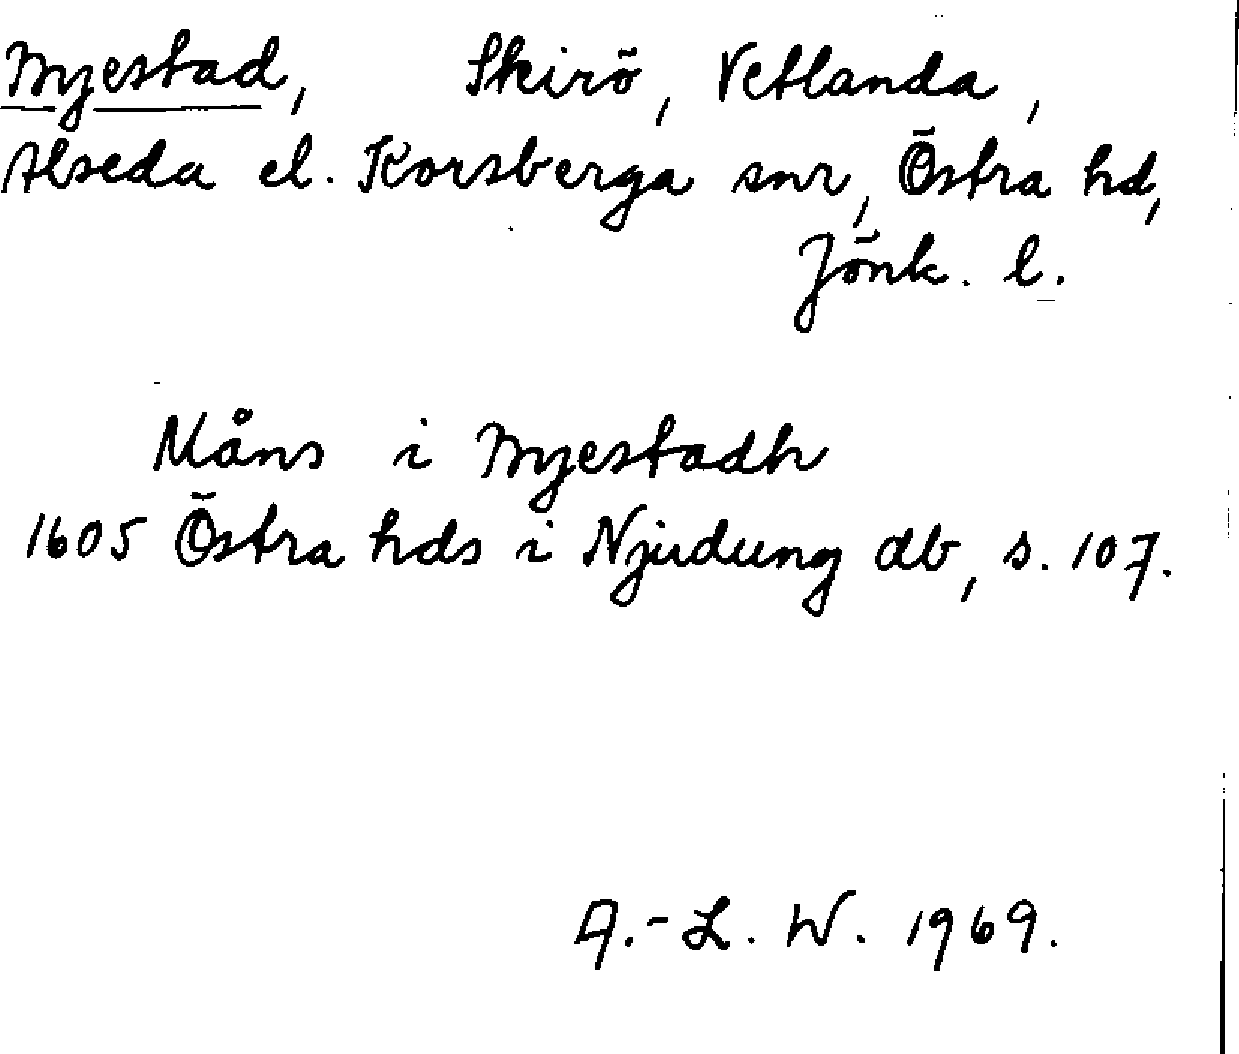 Myestad, Skirö, Vetlanda,
Alseda el. Korsberga snr, Östra hd,
Jönk. l.
Måns i Myestadh
1605 Östra hds i Njudung db, s. 107.
A.-L. W. 1969.